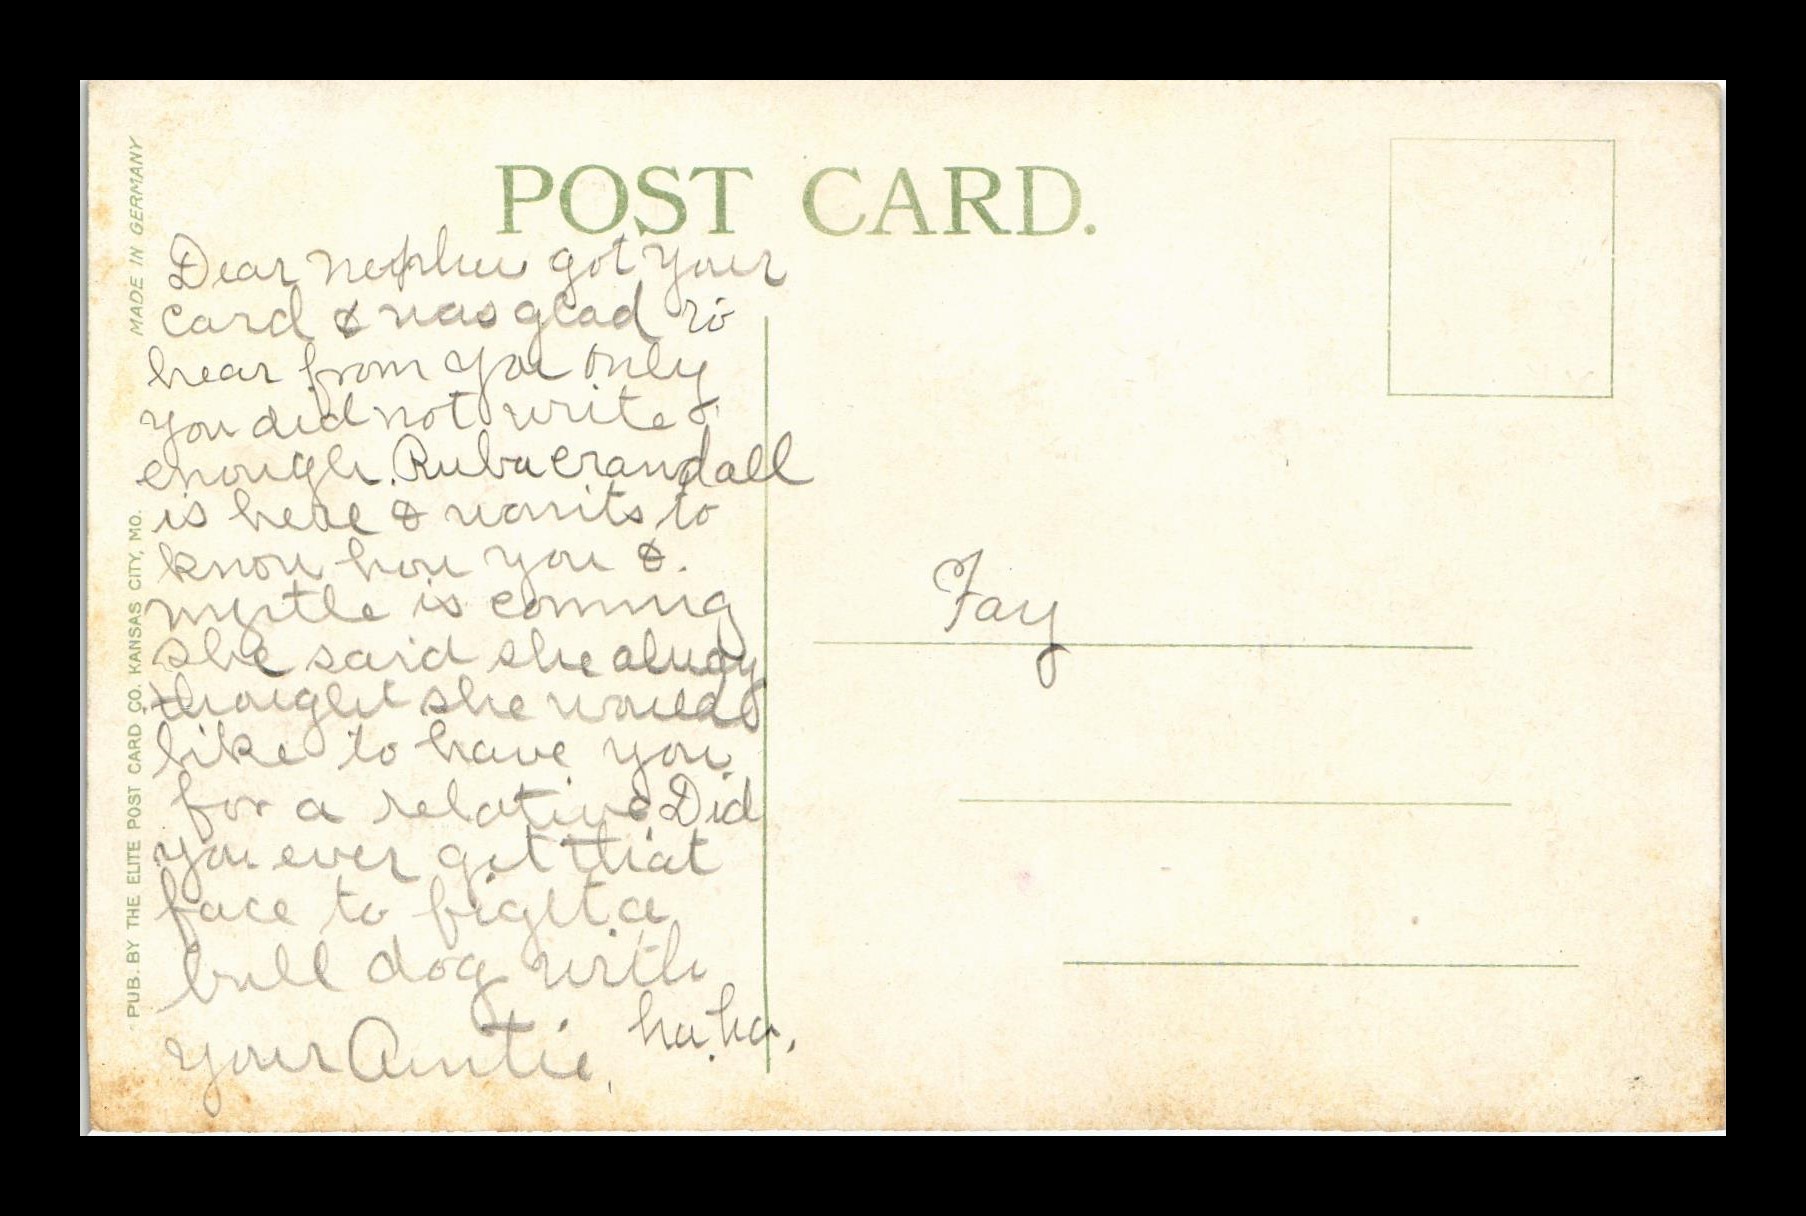 POST CARD.
MADE IN GERMANY
PUB. BY THE ELITE POST CARD CO. KANSAS CITY, MO.
Dear nephew got your
card & was glad to
hear from you only
you did not write
enough. Ruba Crandall
is here & wants to
know how you &
myrtle is coming
she said she alway
thought she would
like to have you
for a relative. Did
you ever get that
face to fight a
bull dog with
ha.ha.
your Auntie.
Fay